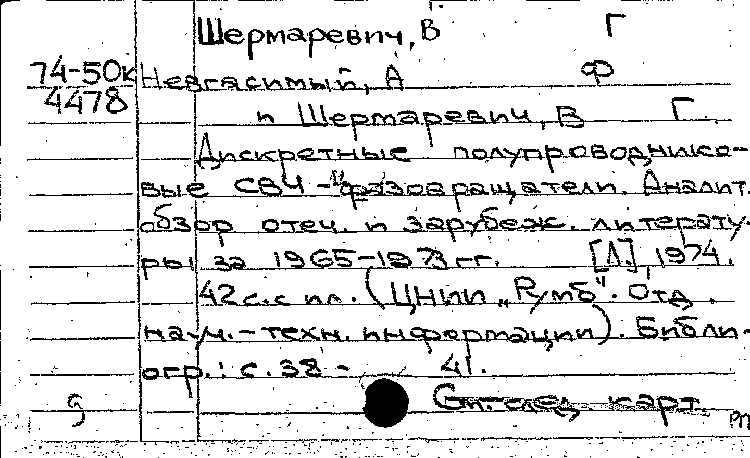 Шермаревич, В Г
74-50к Невгасимый, А Ф
4478
и Шермаревич, В Г.
Дискретные полупроводнико-
вые СВЧ - фазовращатели. Аналит.
обзор отеч. и зарубеж. литерату-
ры за 1965-1973 гг. [Л.], 1974.
42 с. с ил. (ЦНИИ „Румб". Отд.
науч.-техн. информации). Библи-
огр.: с. 38 - 41.
См. след. карт.